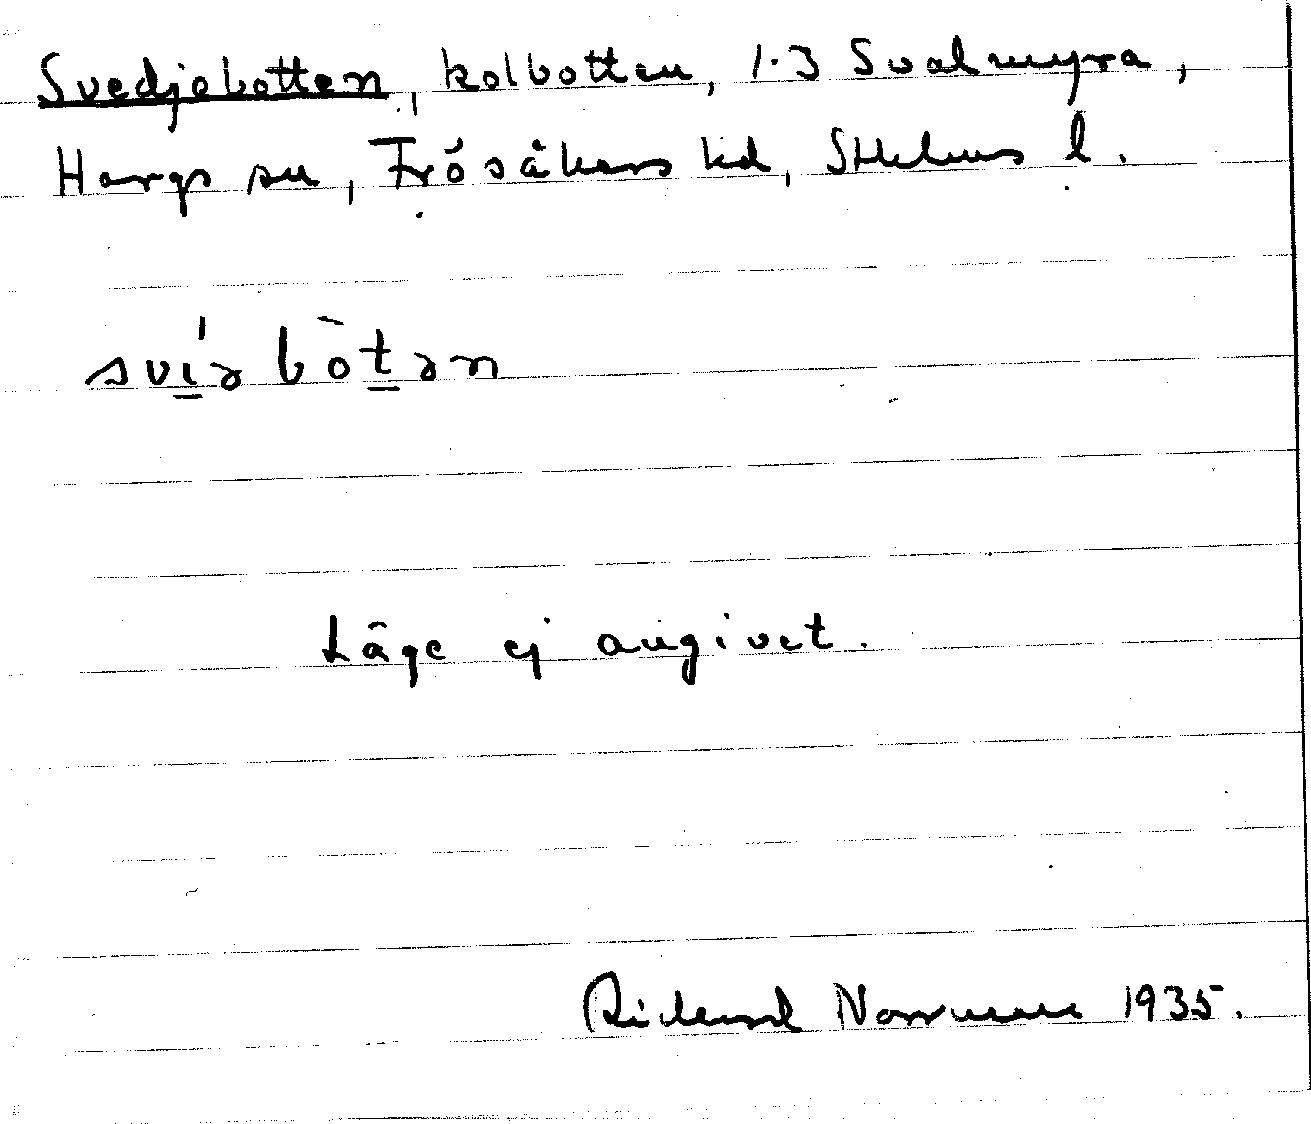 Svedjebotten, kolbotten, 1.3 Svalmyra,
Hargs sn, Frösåkers hd, Sthlms l.
svíəbòtən
Läge ej angivet.
Rickard Norrman 1935.